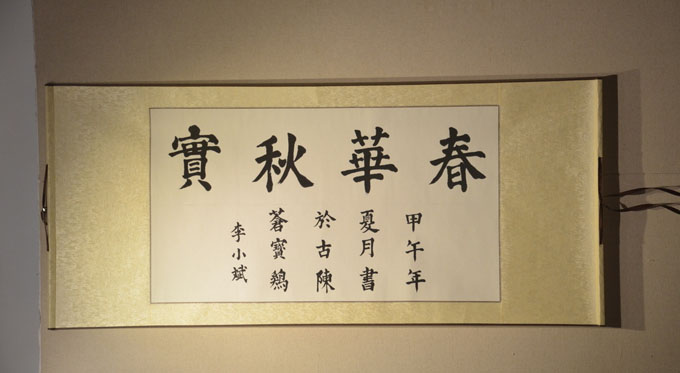 春華秋實
甲午年
夏月書
於古陳
蒼寶鷄
李小斌